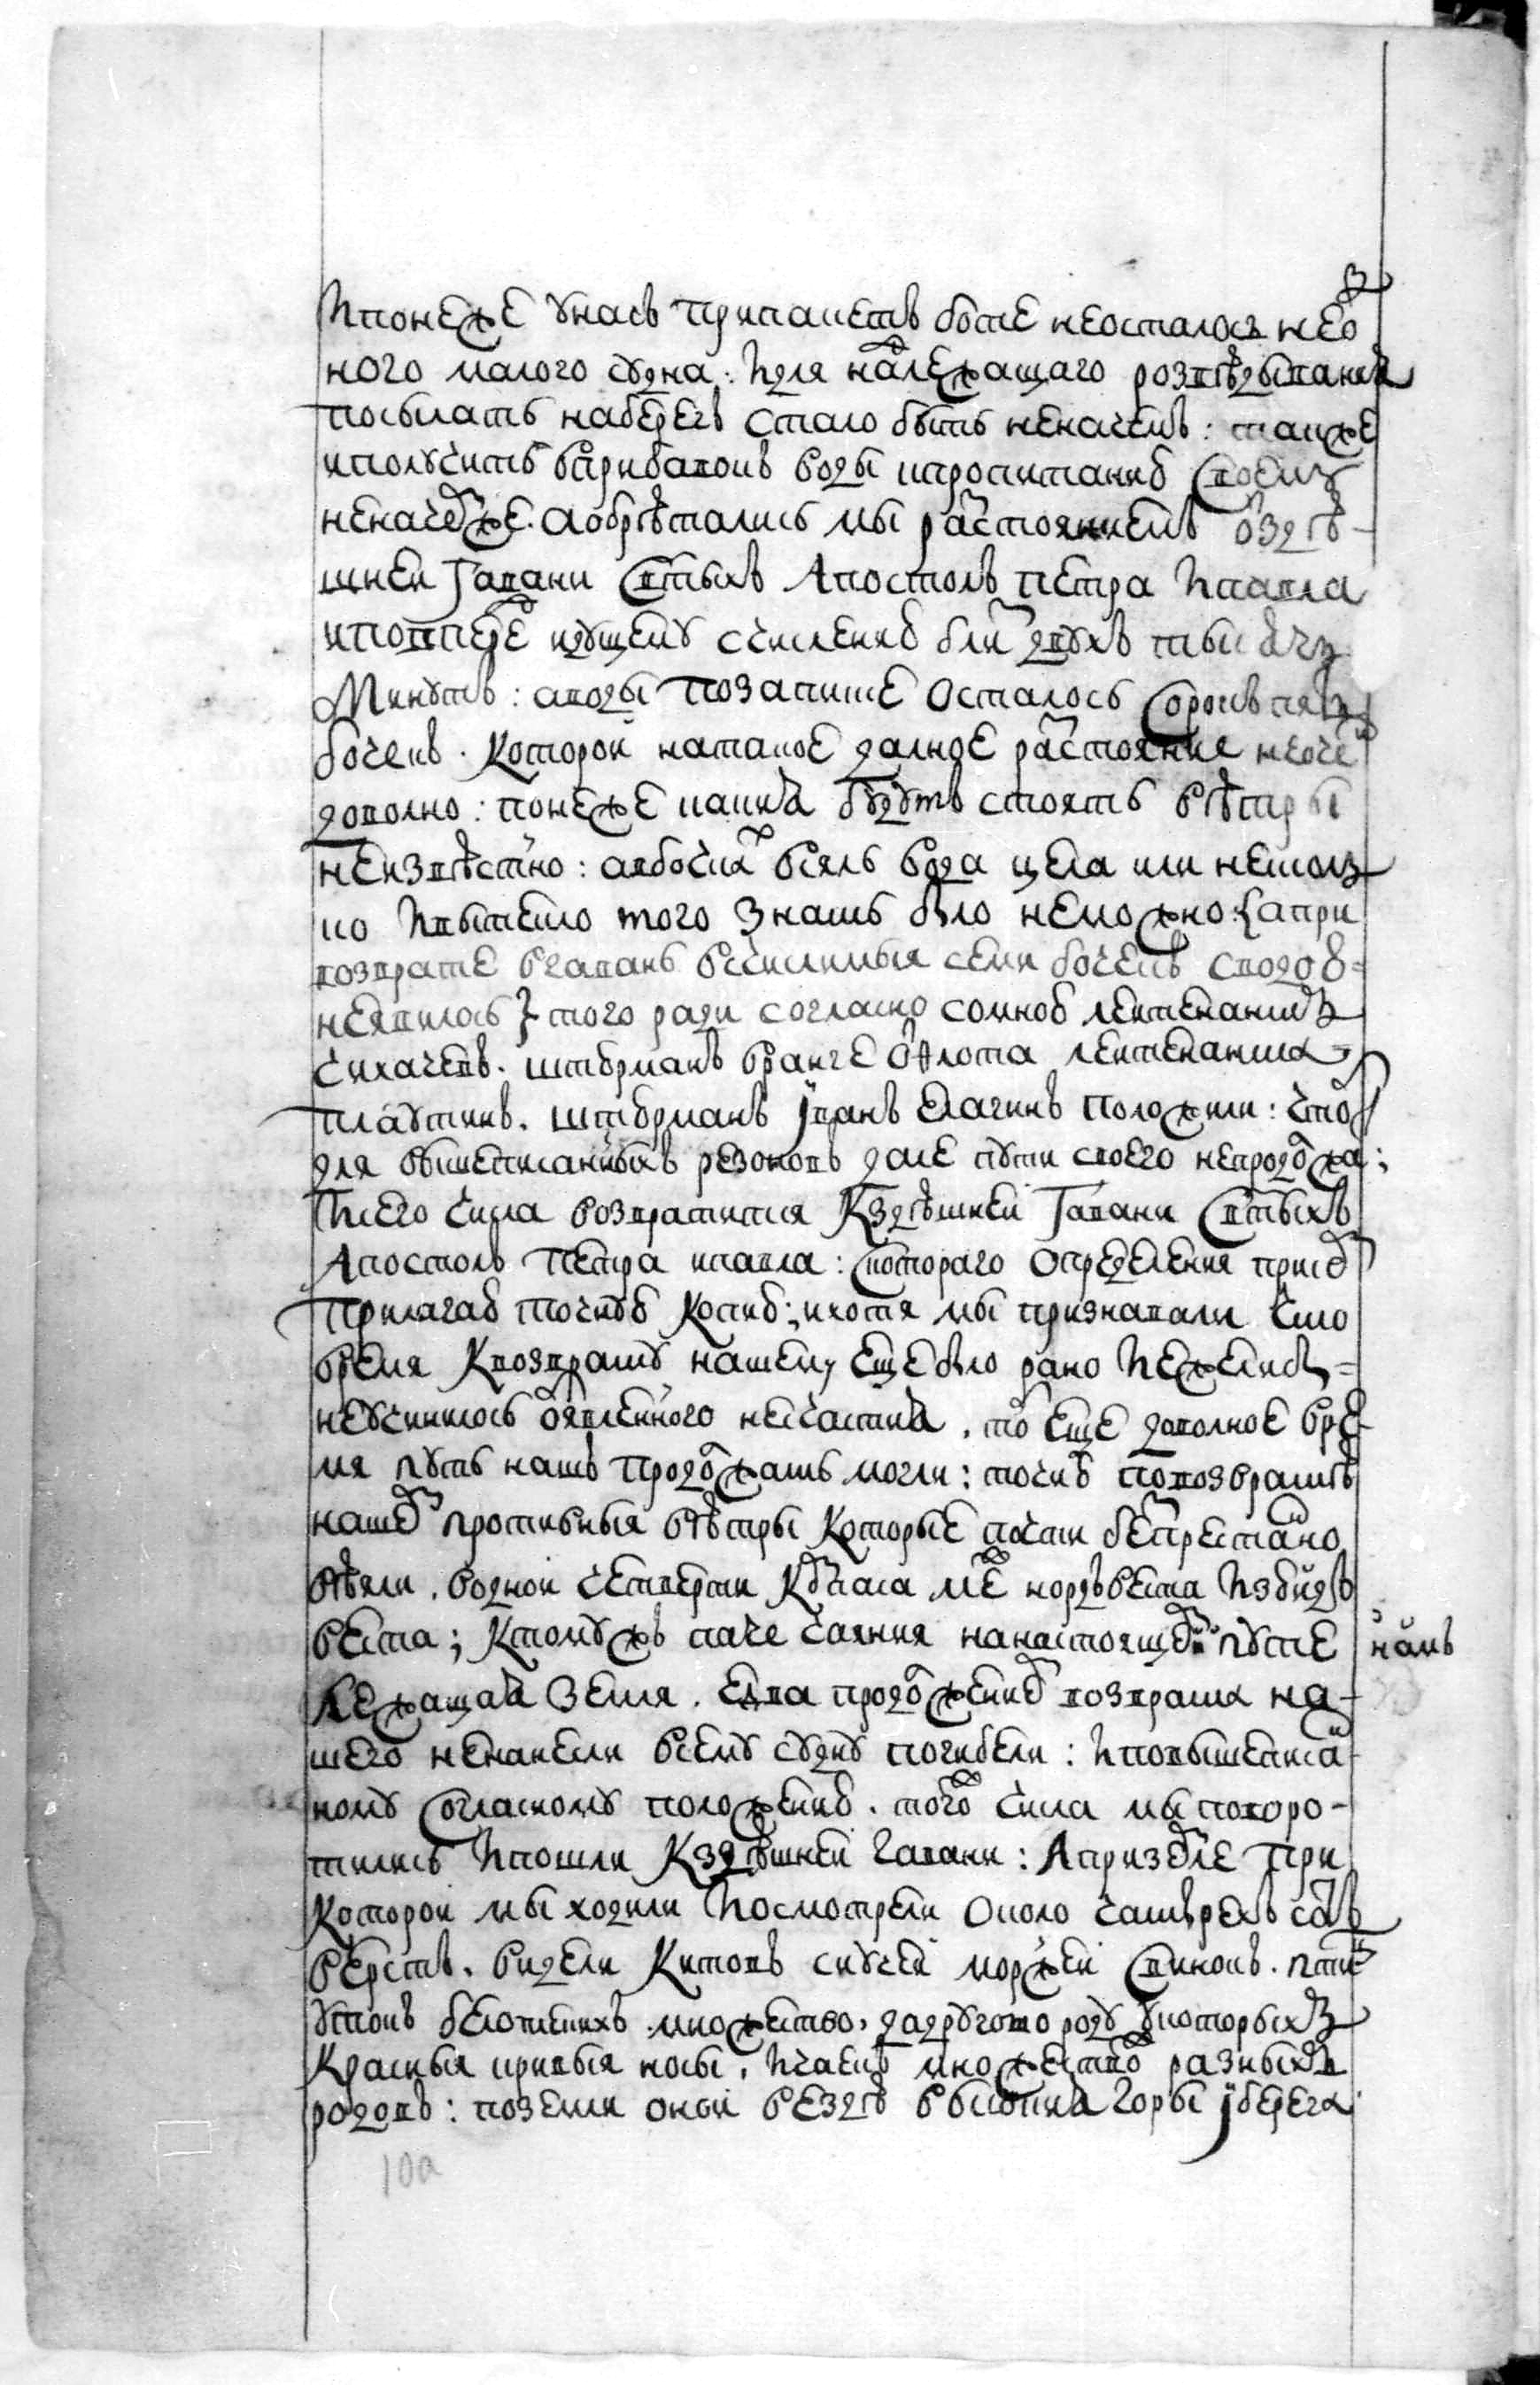 И понеже у насъ при пакетъ боте не осталось нео
ного малого судна: и для надлежащаго розвѣдывания
посылать на берегъ стало быть не на чемъ: также
и получить в прибавокъ воды к пропитанию своему
не на чемже. а обрѣтались мы разстояниемъ о здѣ-
шней гавани святыхъ апостолъ Петра и Павла
и по впередъ идущему счислению близ двухъ тысячъ
минутъ: а воды по записке осталось сорокъ пять
бочекъ. которой на такое далное разстояние не очен
доволно: понеже какия будутъ стоять вѣтры
неизвѣстно: а в бочкахъ вся ль вода цела или нет толь
ко и вытекло того знать было неможно {а при
возврате в гавань в счислимыя семи бочекъ с водою
неявилось} того ради согласно со мною лейтенантъ
Чихачевъ. штюрманъ в ранге о флота лейтенанта
Плаутинъ. штюрманъ Иванъ Елагинъ положили: что
для вышеписанныхъ резоновъ дале пути своего непродолжа;
и сего числа возвратится к здѣшней гавани святыхъ
апостолъ Петра и Павла: с котораго определения при сем
прилагаю точную копию; и хотя мы признавали что
время к возврату нашему еще было рано и ежелиб
не учинилось объявленного несчастия, то еще доволное вре-
мя путь нашъ продолжать могли: точию по возвратѣ
нашем противныя вѣтры которые почти беспрестанно
вѣяли. в одной четверти компаса меж нордъ веста и зюйдъ
веста; к томужъ паче чаяния на настоящем путе намъ
лежащая земля. едва продолжению возврата на-
шего не нанесли всему судну погибели: и по вышеписан-
ному согласному положению. того числа мы поворо-
тились и пошли к здѣшней гавани: а при земле при
которой мы ходили и осмотрели около четырехъ сотъ
верстъ. видели китовъ сиучей моржей свинокъ. птиц
утокъ белошеихъ множество, да другого роду у которыхъ
красныя кривыя носы, и чаекъ множество разныхъ
родовъ: по земли оной вездѣ высокия горы и берега
10a